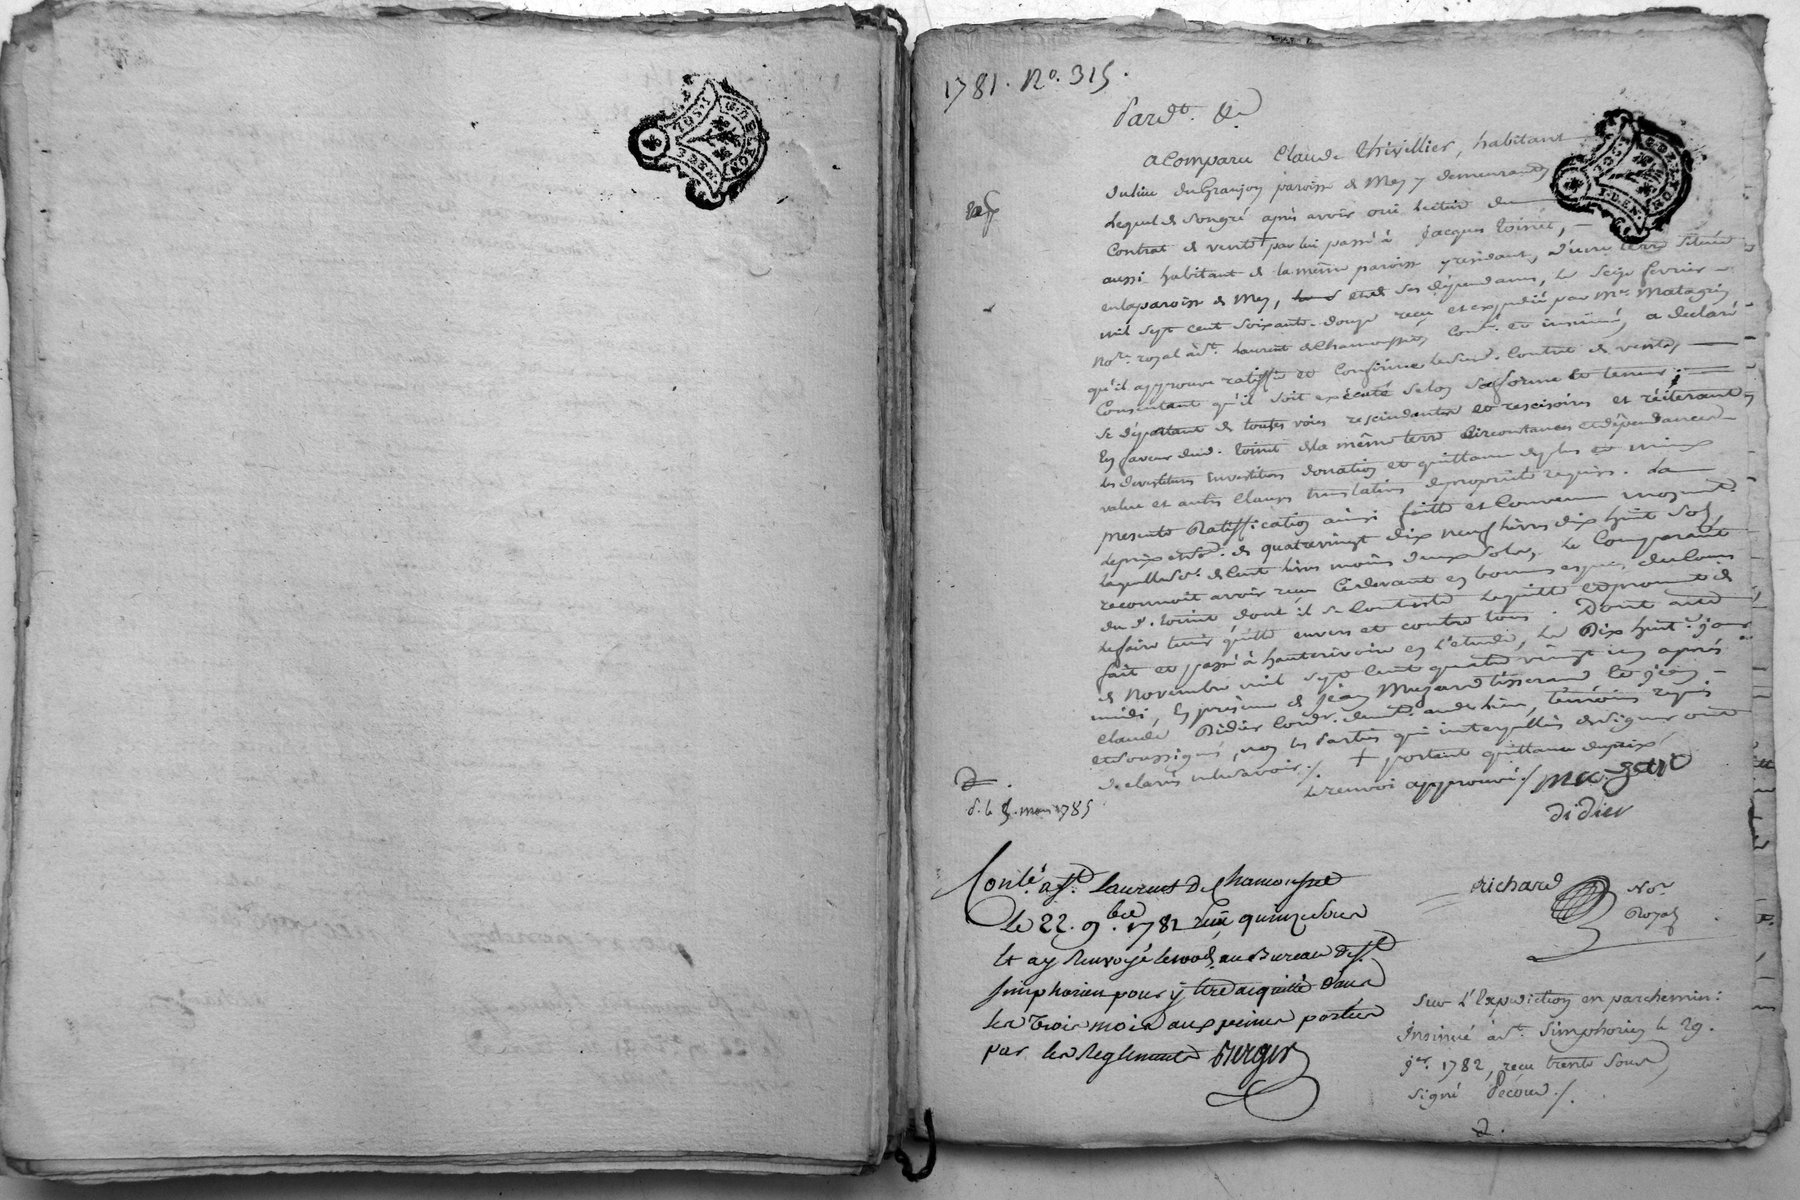 1781. No. 315.
Pardt. &c
a Comparu Claude Thivillier, habitant
du lieu du Granjon paroisse de Mey y demeurant,
Lequel de son gré après avoir oui lecture du
Contrat de vente + par lui passé à Jacques Toinet,
aussi habitant de la même paroisse y residant, d'une terre située
en la paroisse de Mey, et de ses dépendances, le seize fevrier
mil sept cent soixante-douze reçu et expédié par Me. Matagrin
Nore. royal à St. Laurent de Chamousset, Conte. et insinué, a declaré
qu'il approuve ratiffie et Confirme ledit. Contrat de vente,
Consentant qu'il soit exécuté selon sa forme et teneur;
se départant de toutes voies rescindantes et rescisoires et réiterant,
en faveur dud. Toinet de la même terre circonstances et dépendances
les devestitures investitures donation et quittance de plus et mieux
value et autres Clauses translatives de propriété requises. La
presente Ratiffication ainsi faitte et Convenue moyent.
le prix et so. de quatrevingt dix neuf livres dix huit sols,
laquelle so. de Cent livres moins deux sols, le Comparant
reconnoit avoir reçu Cidevant en bonnes espèces du Cours
dud. Toinet dont il se Contente le quitte et promet de
le faire tenir quitte envers et contre tous. Dont acte
fait et passé à hauterivoire en l'etude, le Dix huite. jour
de Novembre mil sept cent quatre vingt un après
midi, En présence de Jean Muzard tisserand et de Jean
Claude Didier Cordr. demt. audit lieu, témoins requis
et soussignés, non les Parties qui interpellées de signer ont
declaré ne le savoir./. + portant quittance du prix
le renvoi approuvé ./. muzard
didier
d. le 5. mars 1785
Conté. a St. Laurent De Chamousset
le 22. 9bre. 1781 reçu quinze sous
et ay Renvoyé au Bureau de St.
simphorien pour y être acquitté dans
les trois mois aux peines portées
par les Reglements Burgir
richard Nore.
Royal
sur L'Expedition en parchemin:
Insinué à St. Simphorien le 29.
Jer. 1782, reçu trente sous,
signé Pécour ./.